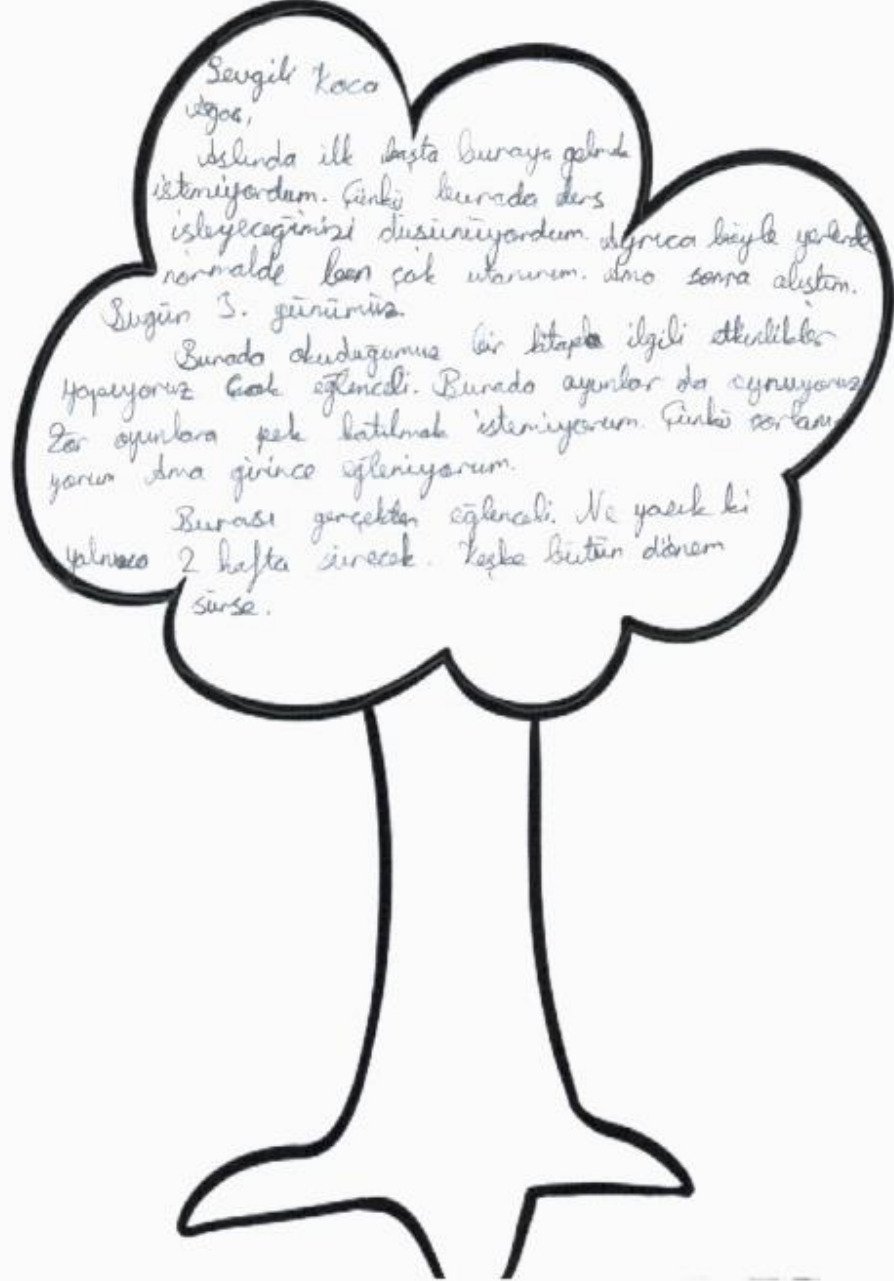 Sevgili Koca
Ağaç,
Aslında ilk başta buraya gelmek
istemiyordum. Çünkü burada ders
işleyeceğimizi düşünüyordum. Ayrıca böyle yerlerde
normalde ben çok utanırım. Ama sonra alıştım.
Bugün 3. günümüz.
Burada okuduğumuz bir kitapla ilgili etkinlikler
yapıyoruz Çok eğlenceli. Burada oyunlar da oynuyoruz
Zor oyunlara pek katılmak istemiyorum. Çünkü zorlanı
yorum Ama girince eğleniyorum.
Burası gerçekten eğlenceli. Ne yazık ki
yalnızca 2 hafta sürecek. Keşke bütün dönem
sürse.